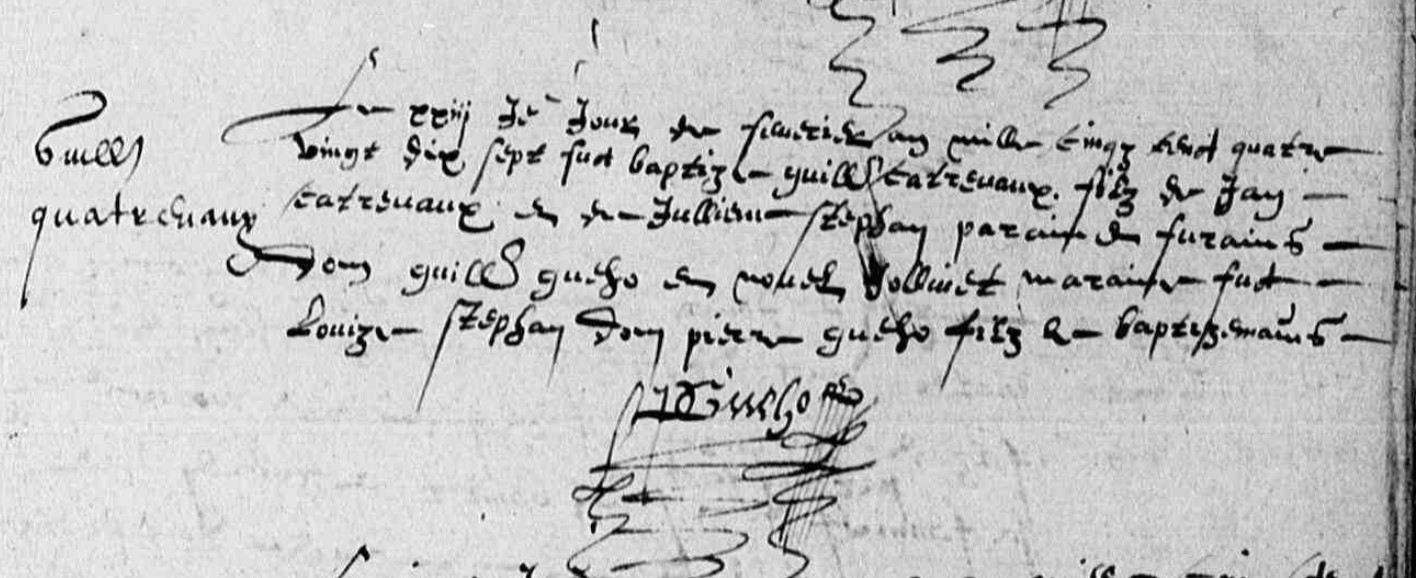 Guill
quatrevaux
Le xxiij Je Jour de febvrier an mille cinqz centz quatre
vingt dix sept fut baptize guill catrevaux filz de Jan
catrevaux et de Jullienne stephan parains furains
Dom guill gueho et nouel Jollivet maraine fut
Louize stephan Dom pierre gueho filz le baptizemains
P Gueho